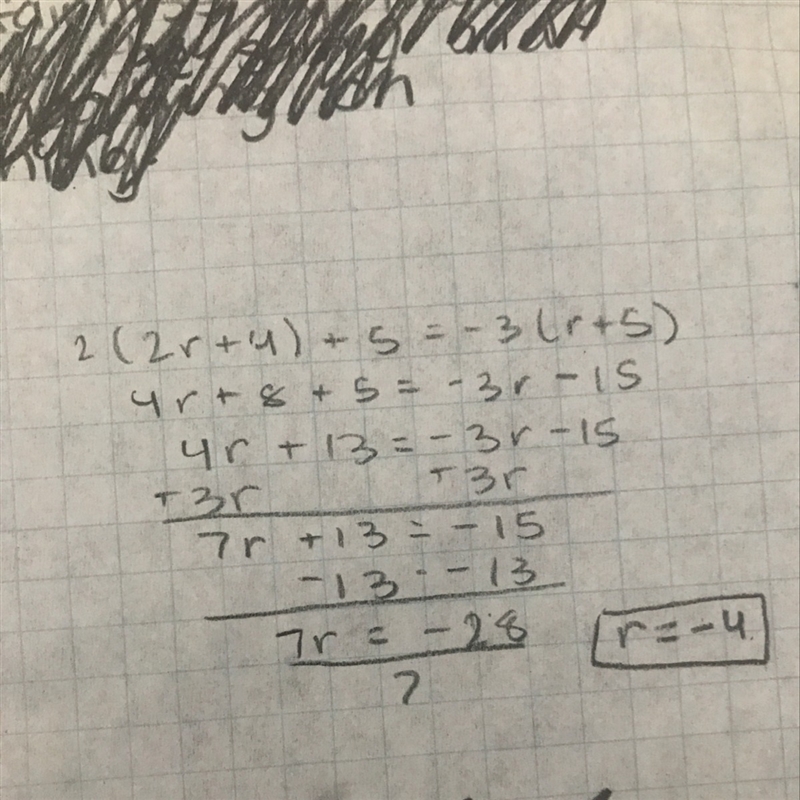 2(2r+4) + 5 = -3(r+5)
4r + 8 + 5 = -3r - 15
4r + 13 = -3r - 15
+3r +3r
7r +13 = -15
-13 - -13
7r = -28
7
r = -4